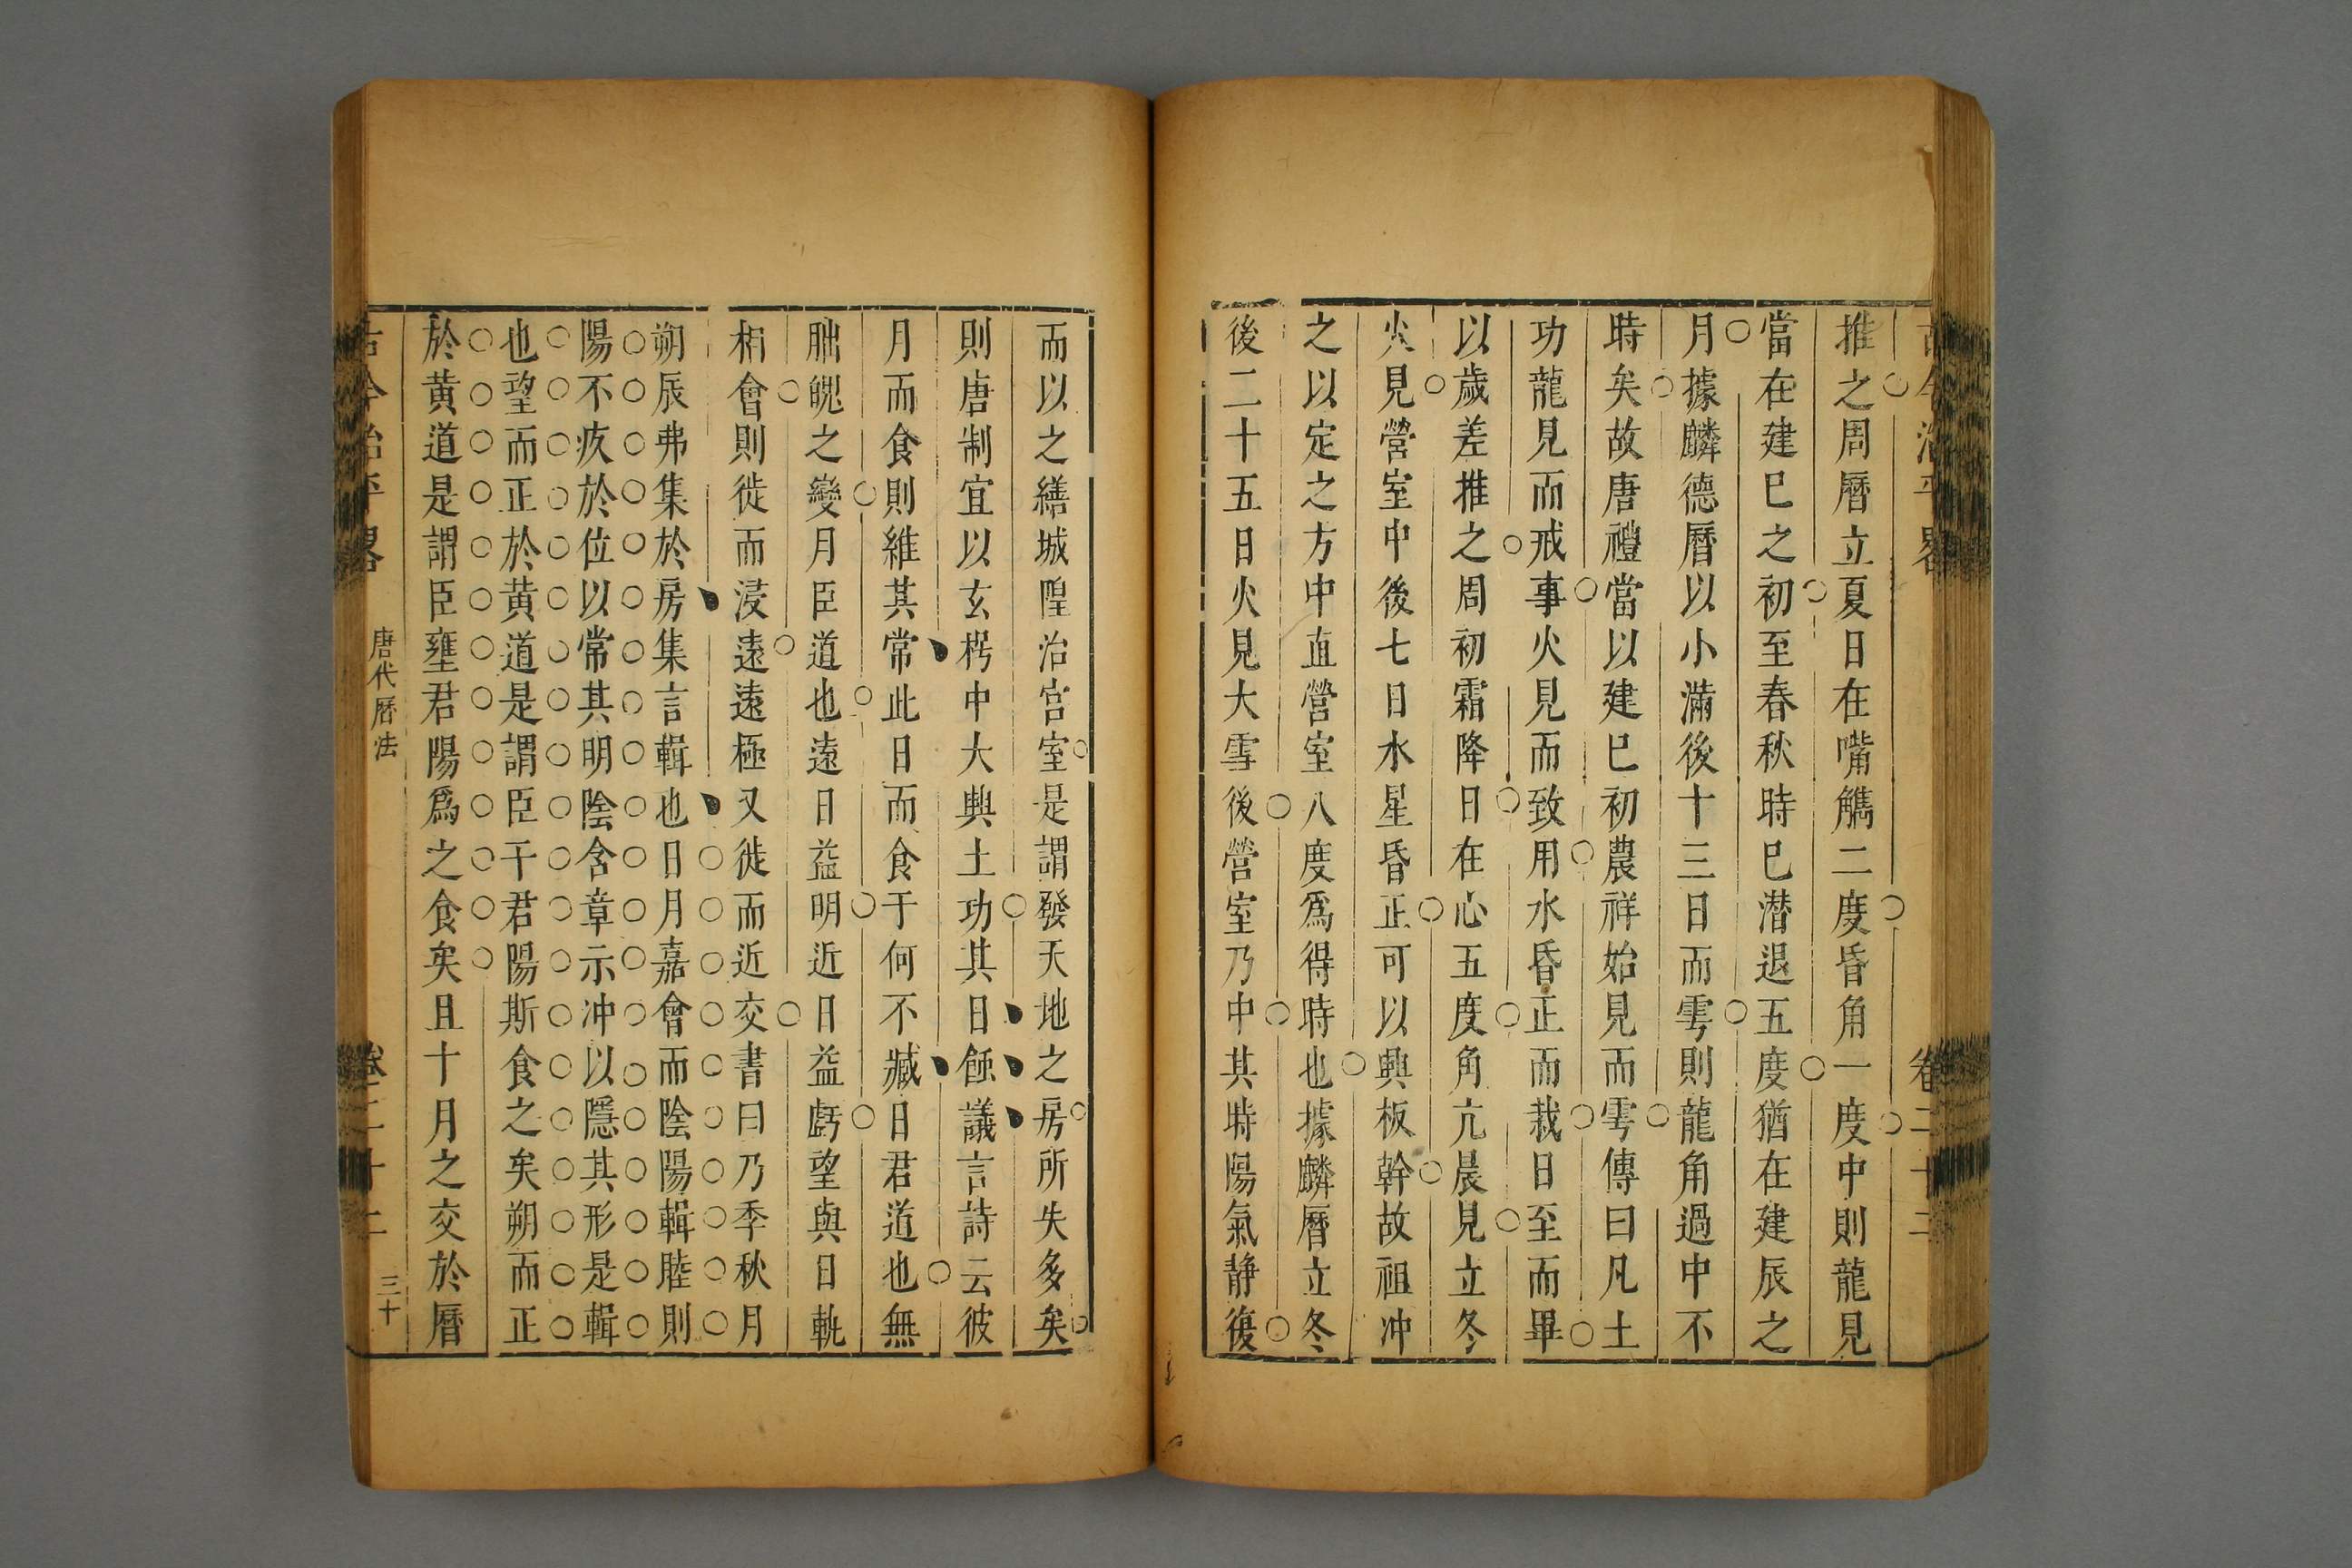 推之周曆立夏日在嘴觿二度昏角一度中則龍見
當在建巳之初至春秋時已潛退五度猶在建辰之
月據麟德曆以小滿後十三日而雩則龍角過中不
時矣故唐禮當以建巳初農祥始見而雩傳曰凡土
功龍見而戒事火見而致用水昏正而栽日至而畢
以歲差推之周初霜降日在心五度角亢晨見立冬
火見營室中後七日水星昏正可以興板幹故祖冲
之以定之方中直營室八度爲得時也據麟曆立冬
後二十五日火見大雪後營室乃中其時陽氣靜復
而以之繕城隍治宮室是謂發天地之房所失多矣
則唐制宜以玄枵中大興土功其日蝕議言詩云彼
月而食則維其常此日而食于何不臧日君道也無
朏魄之變月臣道也遠日益明近日益虧望與日軌
相會則徙而浸遠遠極又徙而近交書曰乃季秋月
朔辰弗集於房集言輯也日月嘉會而陰陽輯睦則
陽不疚於位以常其明陰含章示冲以隱其形是輯
也望而正於黃道是謂臣干君陽斯食之矣朔而正
於黃道是謂臣壅君陽爲之食矣且十月之交於曆
唐代曆法
卷二十二
三十